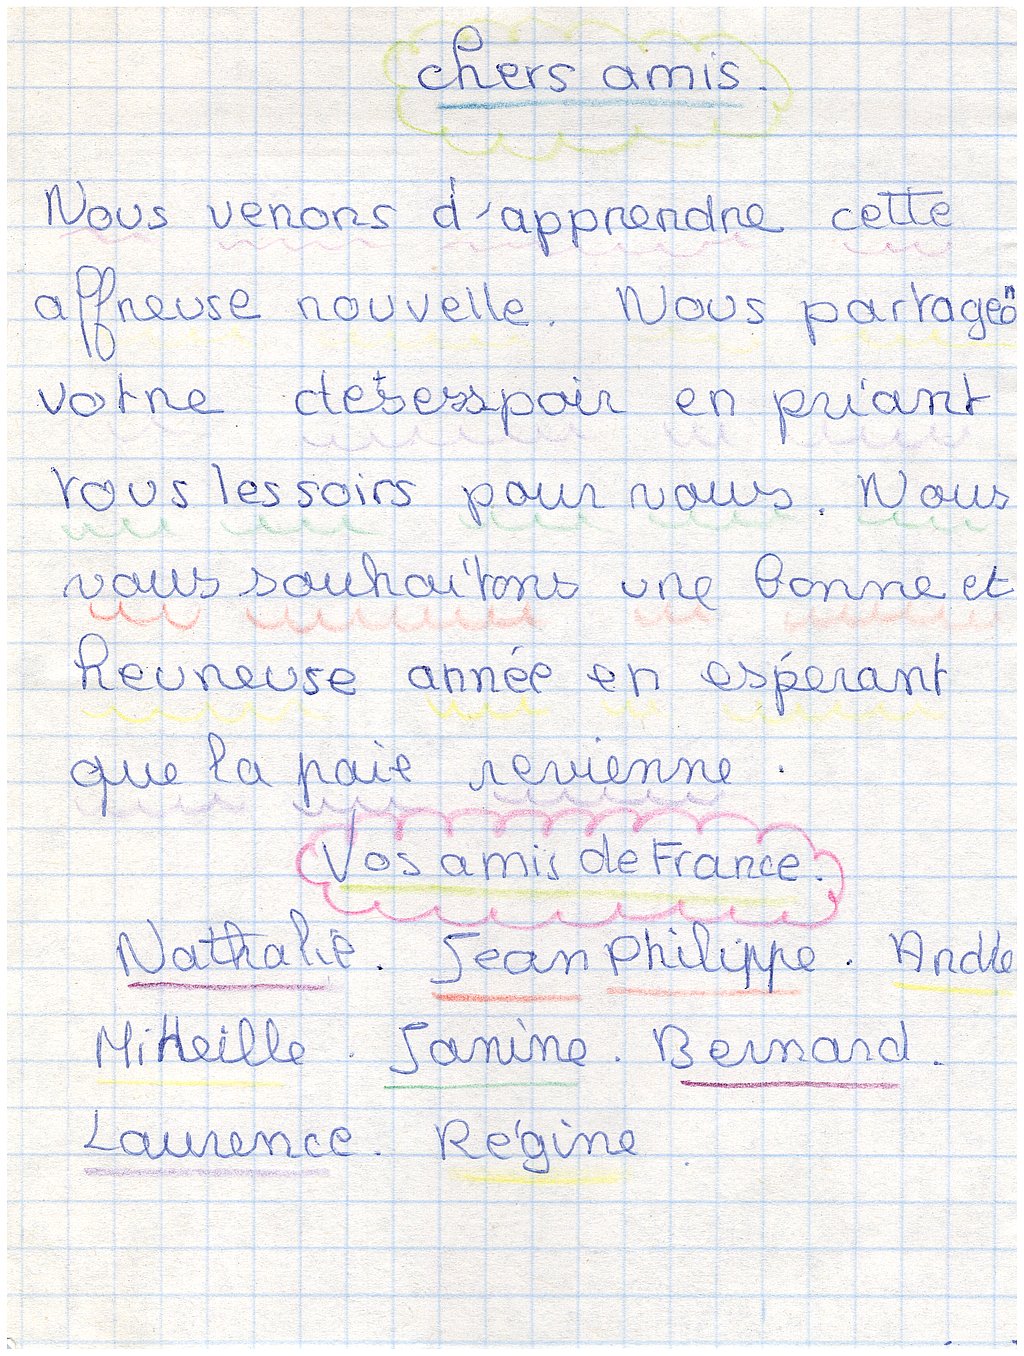 chers amis.
Nous venons d'apprendre cette
affreuse nouvelle. Nous partageon
votre desesspoir en priant
tous les soirs pour vous. Nous
vous souhaitons une bonne et
heureuse année en espérant
que la paie revienne.
Vos amis de France.
Nathalie. Jean Philippe. Andre
Mireille. Janine. Bernard.
Laurence. Régine